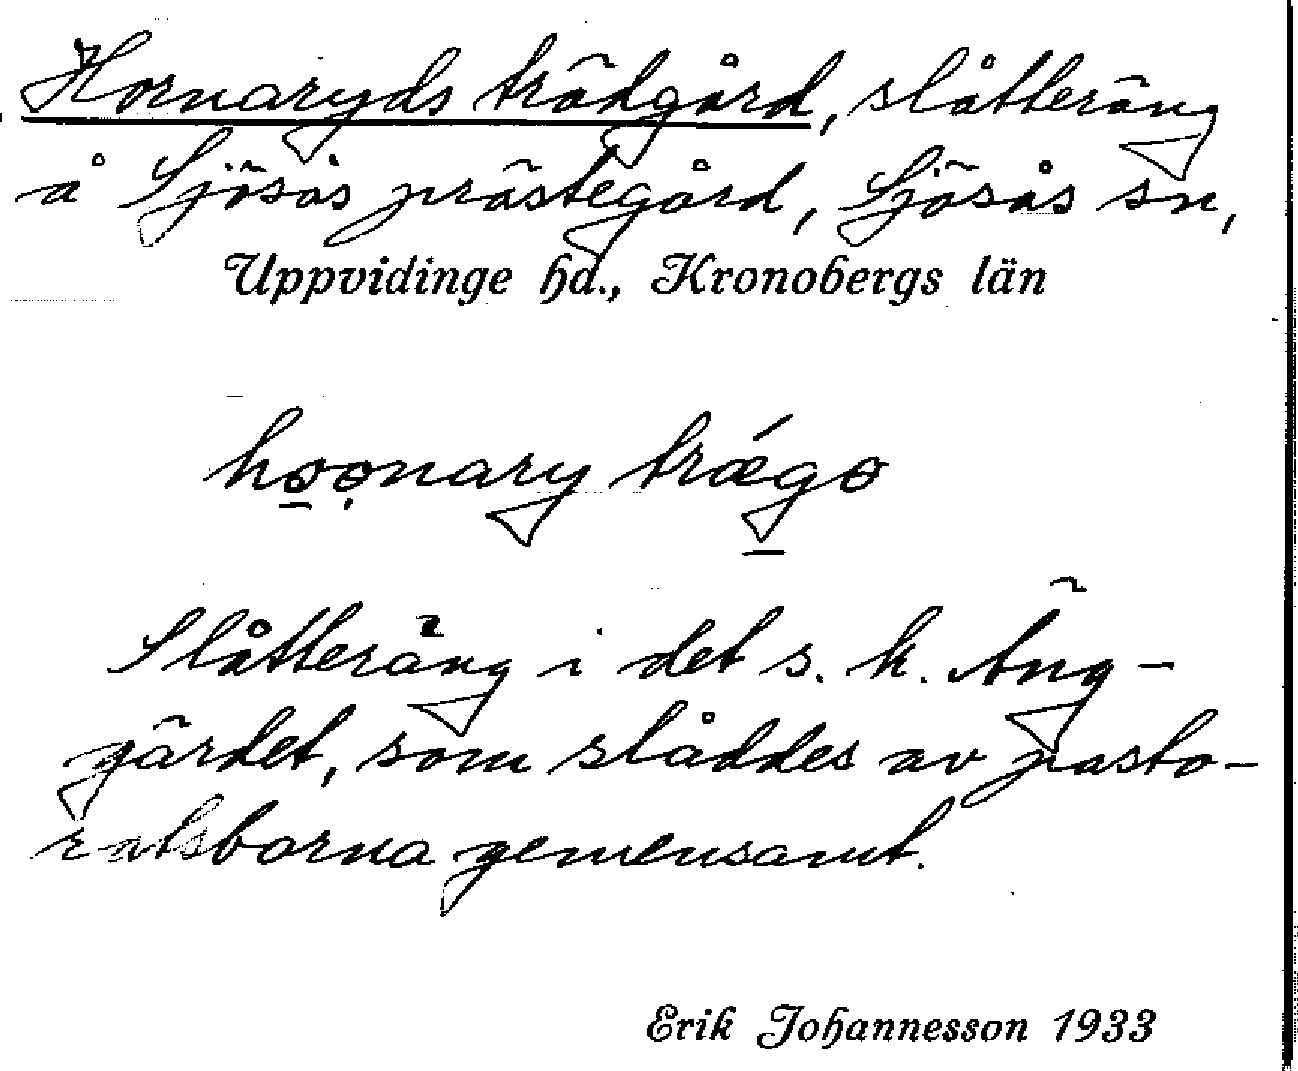 Hornaryds trädgård, slåtteräng
å Sjösås prästegård, Sjösås sn,
Uppvidinge hd., Kronobergs län
ho̱ọnary trǽgo
Slåtteräng i det s. k. Äng-
gärdet, som slåddes av pasto-
ratsborna gemensamt.
Erik Johannesson 1933